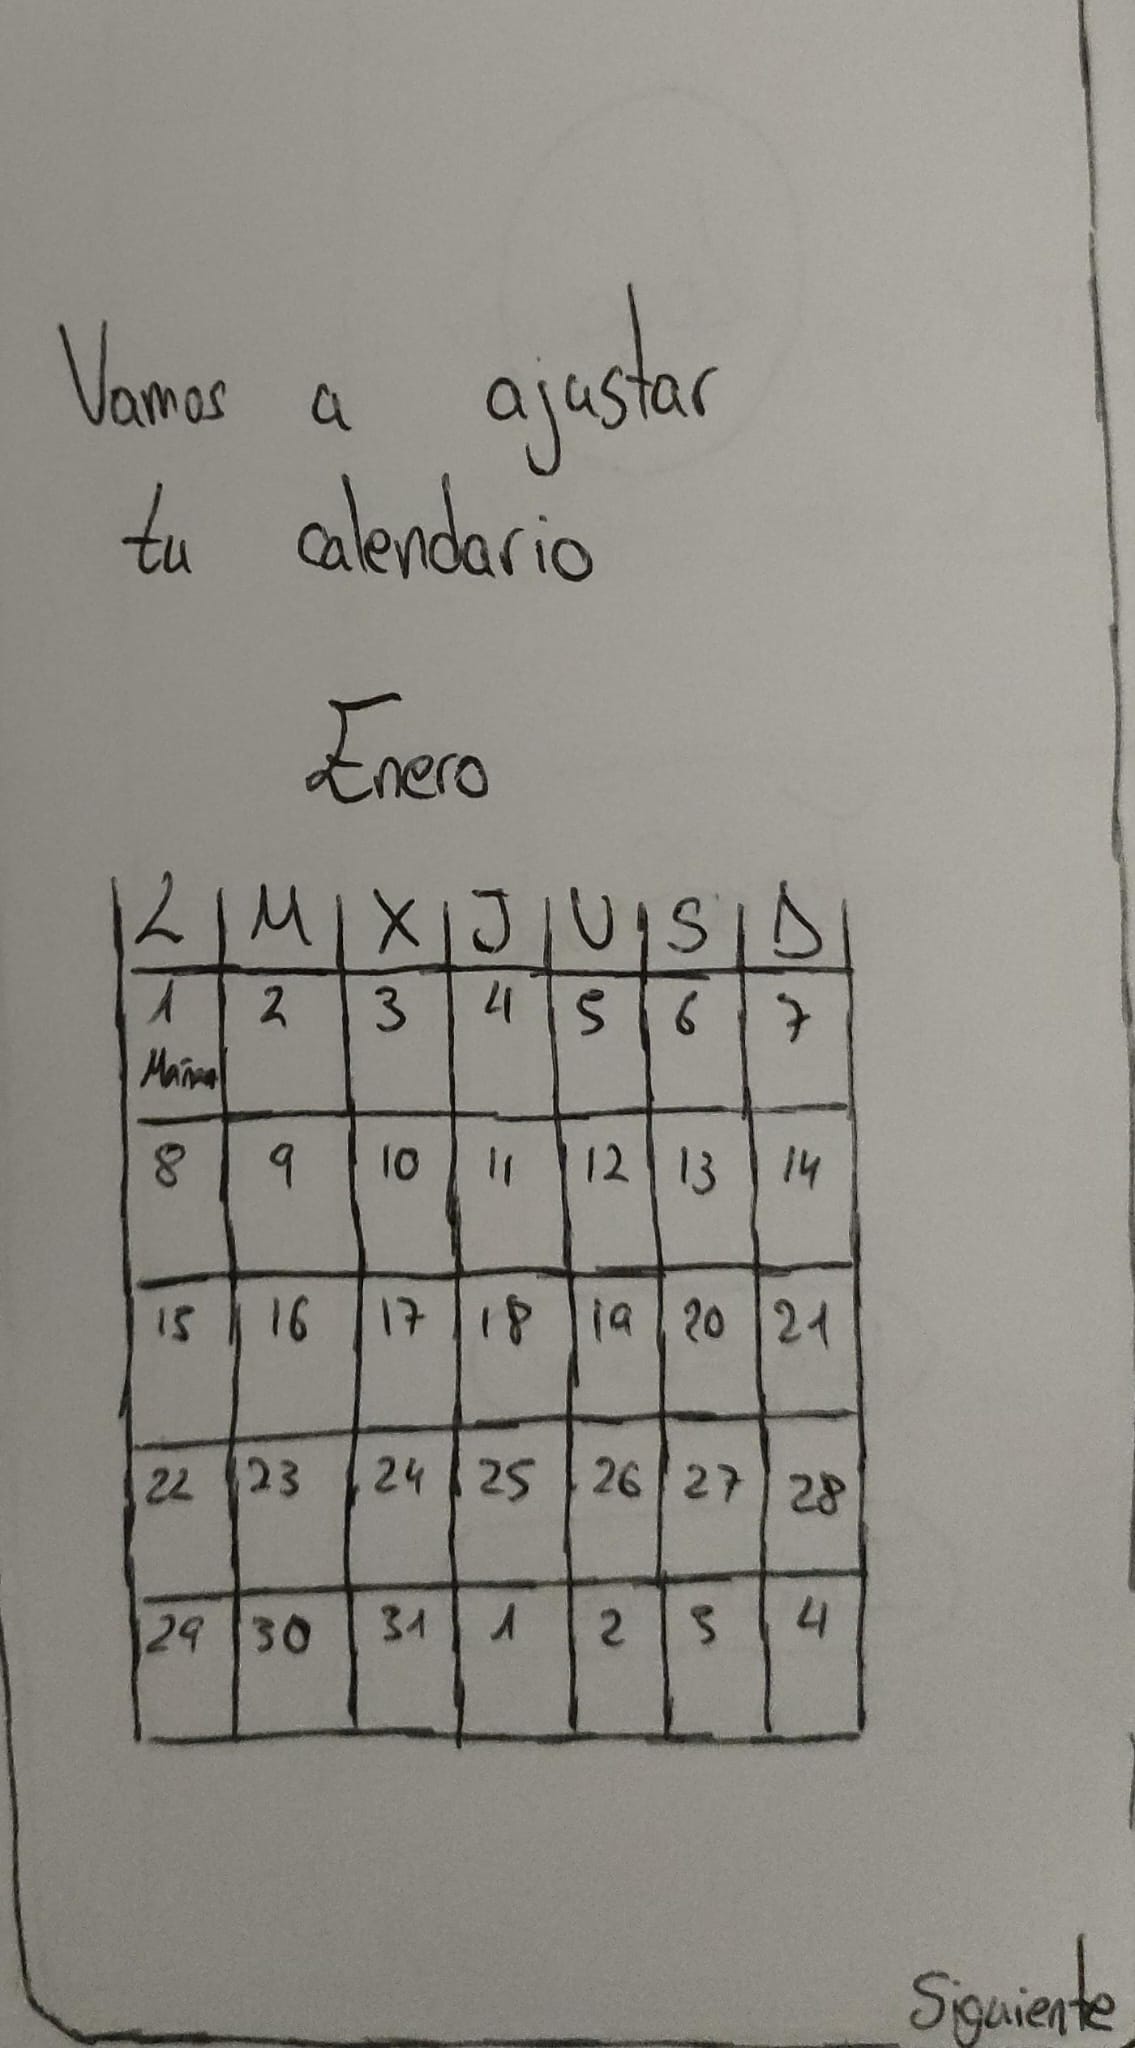 Vamos a ajustar
tu calendario
Enero
L M X J V S D
1 2 3 4 5 6 7
Mañana
8 9 10 11 12 13 14
15 16 17 18 19 20 21
22 23 24 25 26 27 28
29 30 31 1 2 3 4
Siguiente